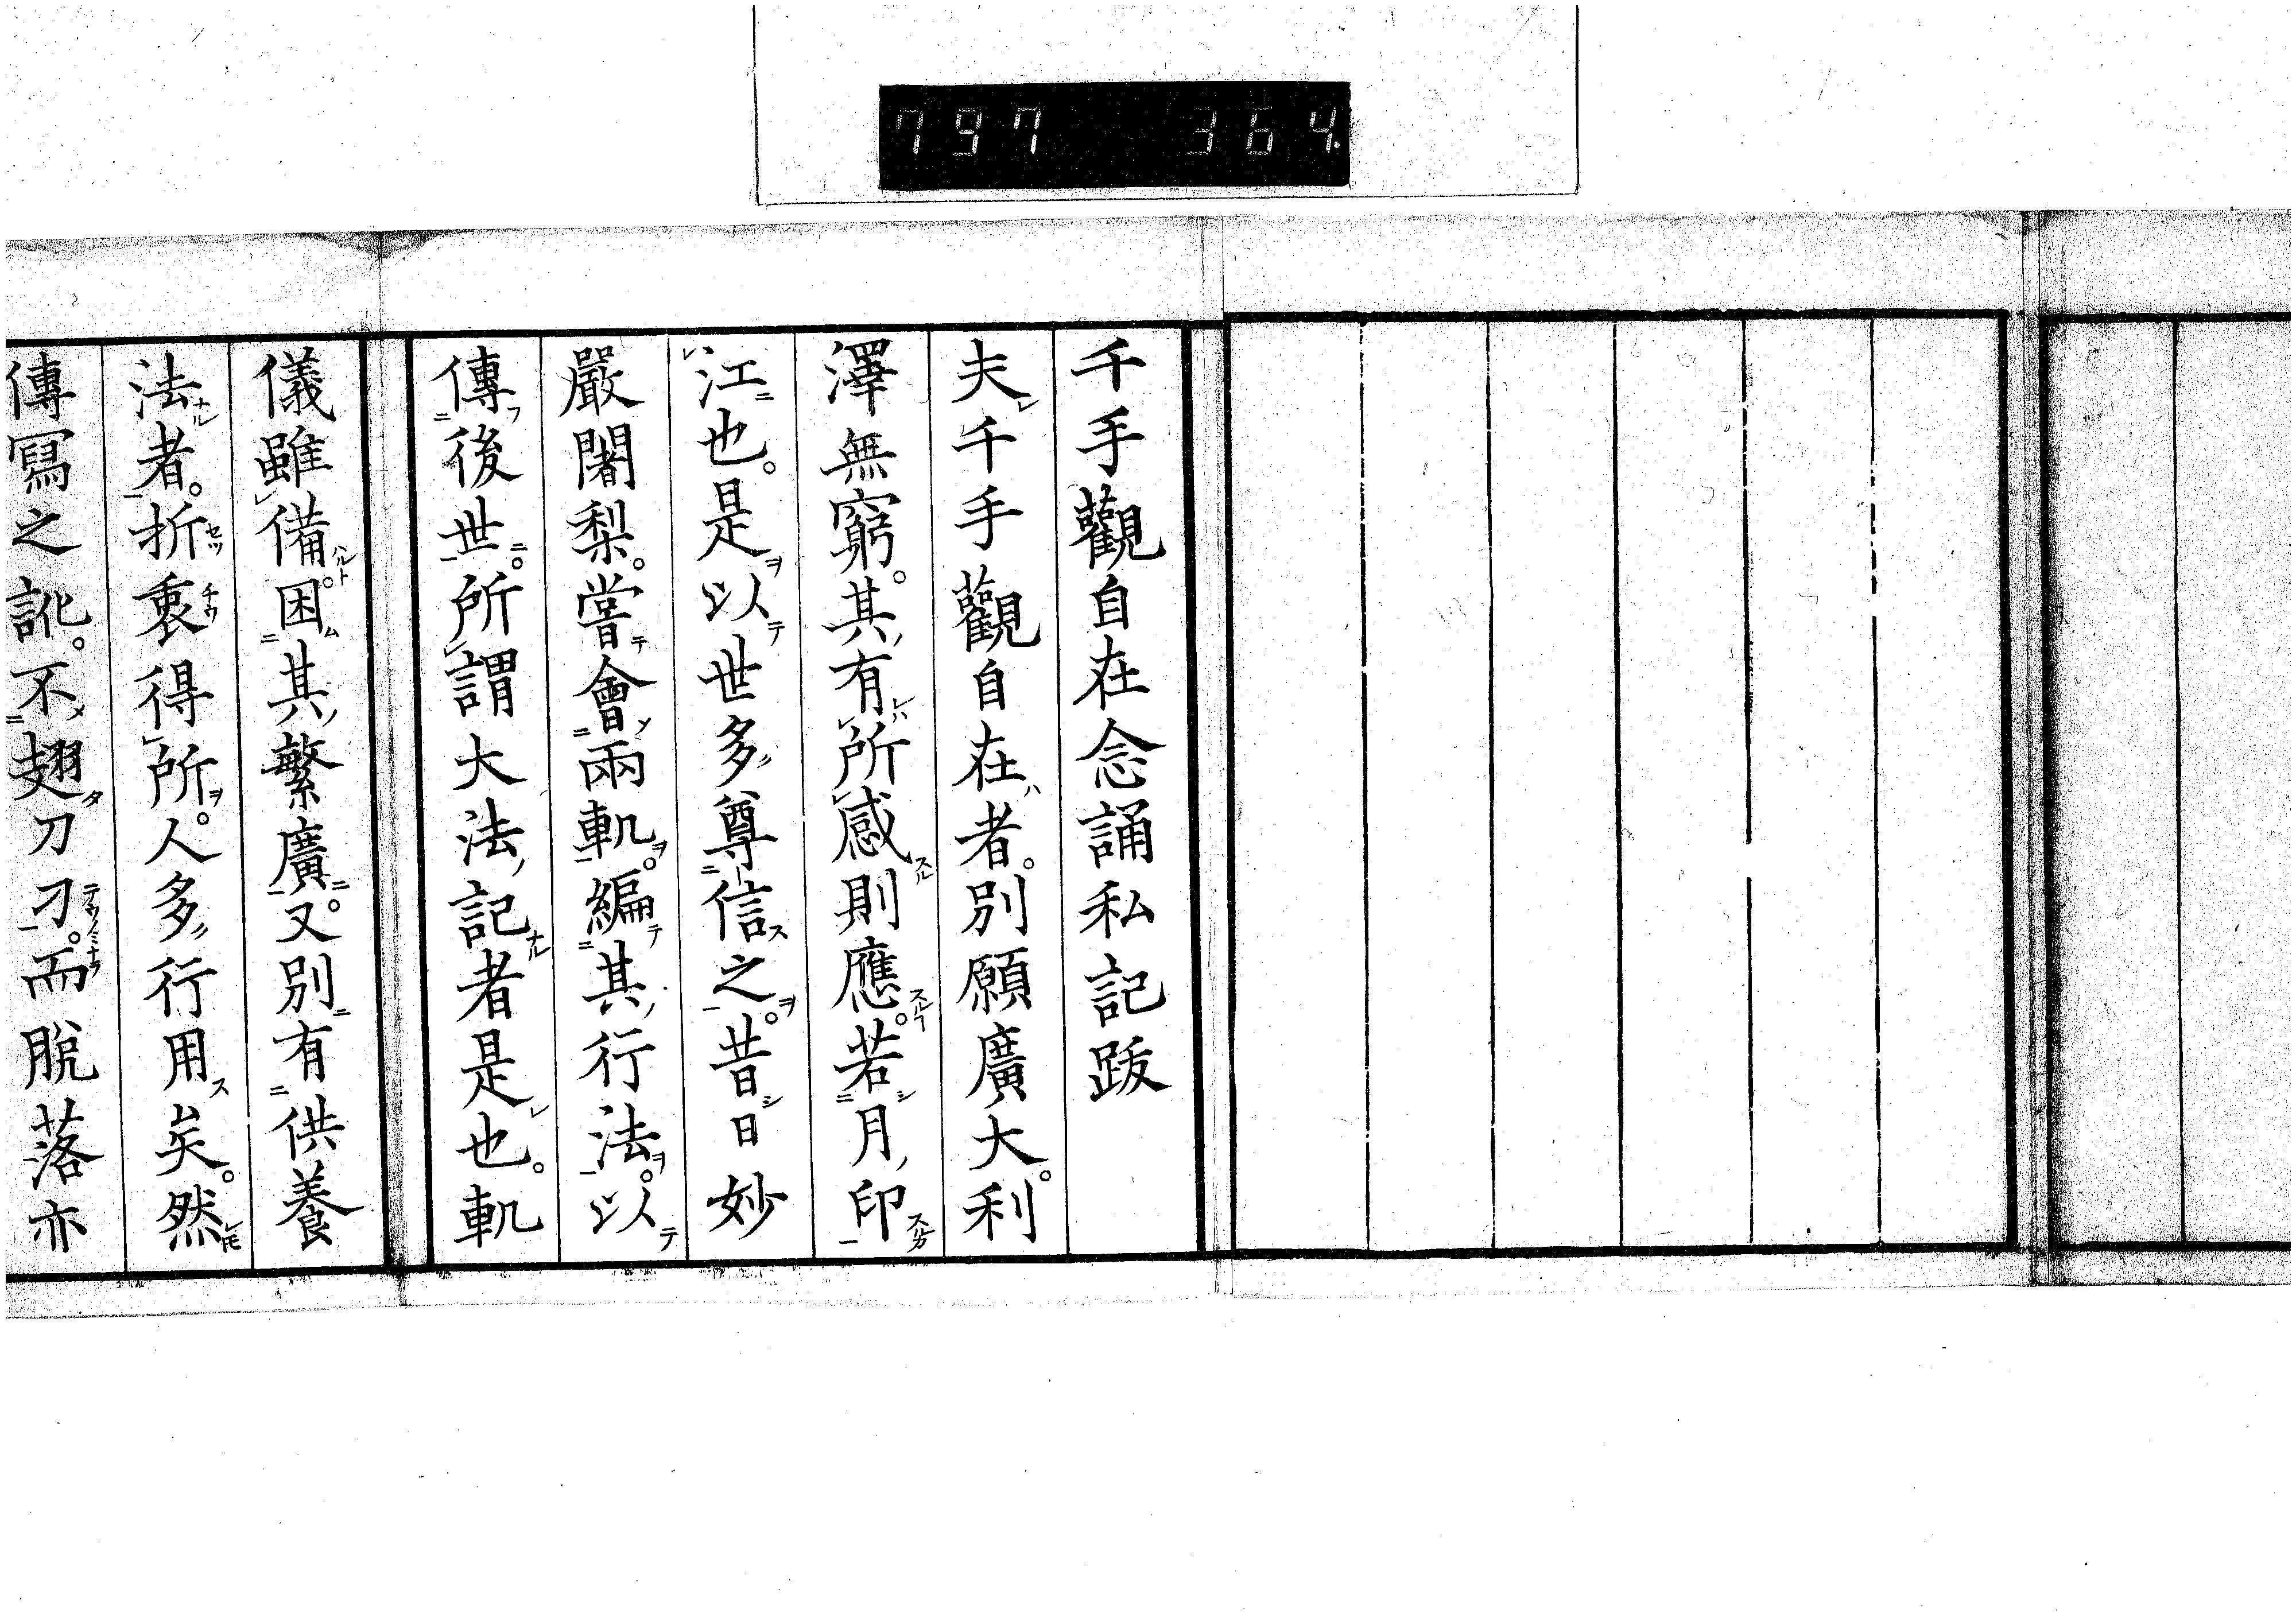 797 364.
千手觀自在念誦私記跋
夫千手觀自在者。別願廣大。利
澤無窮。其有所感則應。若月印
江也。是以世多尊信之。昔日妙
嚴闍梨。嘗會兩軓。編其行法。以
傳後世。所謂大法記者是也。軓
儀雖備。困其繁廣。又別有供養
法者。折衷得所。人多行用矣。然
傳寫之訛。不翅刀刁。而脫落亦